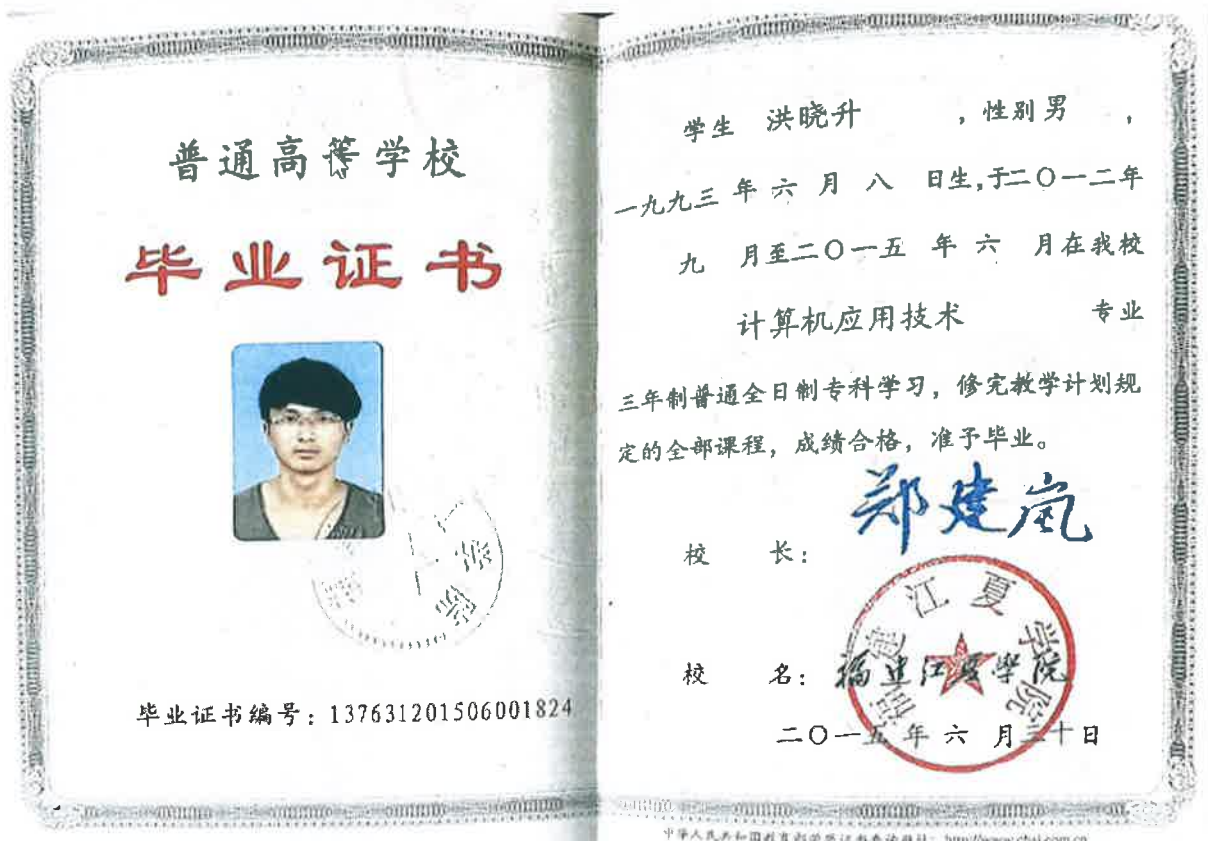 普通高等学校
毕业证书
学院
毕业证书编号：137631201506001824
学生 洪晓升 ，性别 男 ，
一九九三 年 六 月 八 日生,于二〇一二年
九 月至二〇一五 年 六 月在我校
计算机应用技术 专业
三年制普通全日制专科学习，修完教学计划规
定的全部课程，成绩合格，准予毕业。
郑建岚
校 长：
福建江夏学院
校 名：福建江夏学院
二〇一五 年 六 月三十日
中华人民共和国教育部学历证书查询网址：http://www.chsi.com.cn